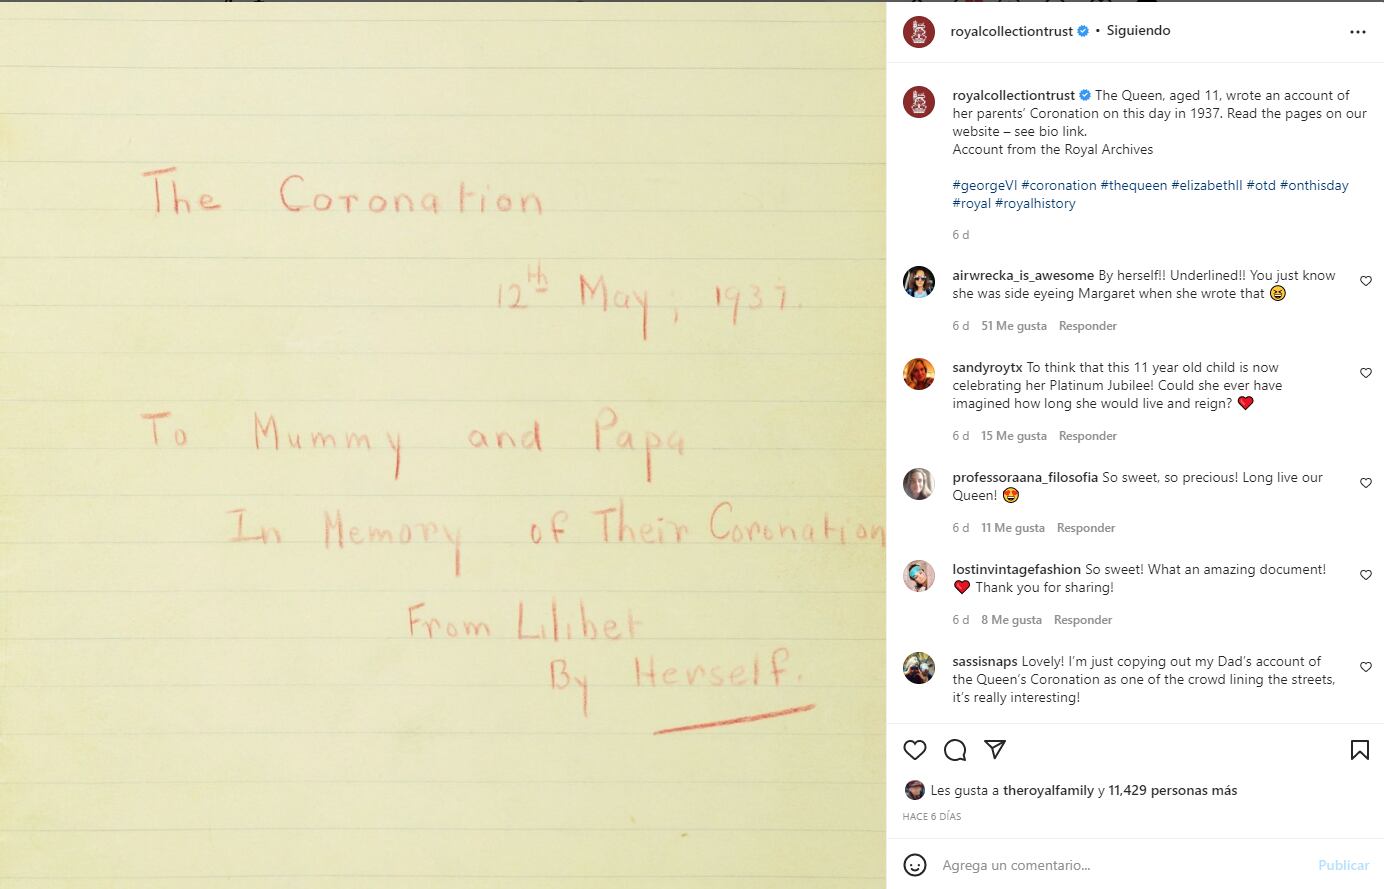 The Coronation
12th May, 1937.
To Mummy and Papa
In Memory of Their Coronation
From Lilibet
By Herself.
royalcollectiontrust • Siguiendo
royalcollectiontrust The Queen, aged 11, wrote an account of
her parents’ Coronation on this day in 1937. Read the pages on our
website – see bio link.
Account from the Royal Archives
#georgeVI #coronation #thequeen #elizabethII #otd #onthisday
#royal #royalhistory
6 d
airwrecka_is_awesome By herself!! Underlined!! You just know
she was side eyeing Margaret when she wrote that 😆
6 d 51 Me gusta Responder
sandyroytx To think that this 11 year old child is now
celebrating her Platinum Jubilee! Could she ever have
imagined how long she would live and reign? ❤️
6 d 15 Me gusta Responder
professoraana_filosofia So sweet, so precious! Long live our
Queen! 😍
6 d 11 Me gusta Responder
lostinvintagefashion So sweet! What an amazing document!
❤️ Thank you for sharing!
6 d 8 Me gusta Responder
sassisnaps Lovely! I’m just copying out my Dad’s account of
the Queen’s Coronation as one of the crowd lining the streets,
it’s really interesting!
Les gusta a theroyalfamily y 11,429 personas más
HACE 6 DÍAS
Agrega un comentario...
Publicar